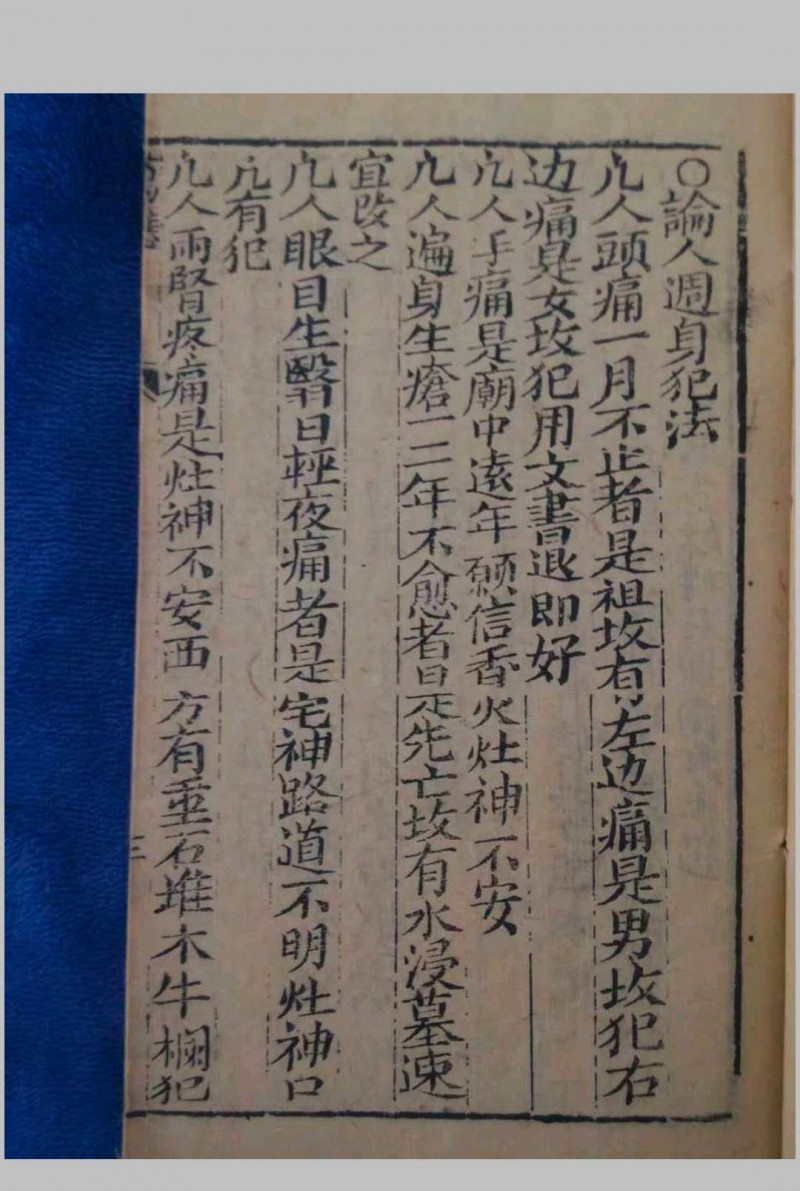 ○論人週身犯法
凢人頭痛一月不止者是祖坟有左边痛是男坟犯右
边痛是女坟犯用文書退即好
凢人手痛是廟中遠年願信香火灶神不安
凢人遍身生瘡一二年不愈者是先亡坟有水浸墓速
宜改之
凢人眼目生翳日輕夜痛者是宅神路道不明灶神口
凢有犯
凢人兩腎疼痛是灶神不安西方有重石堆木牛欄犯
三